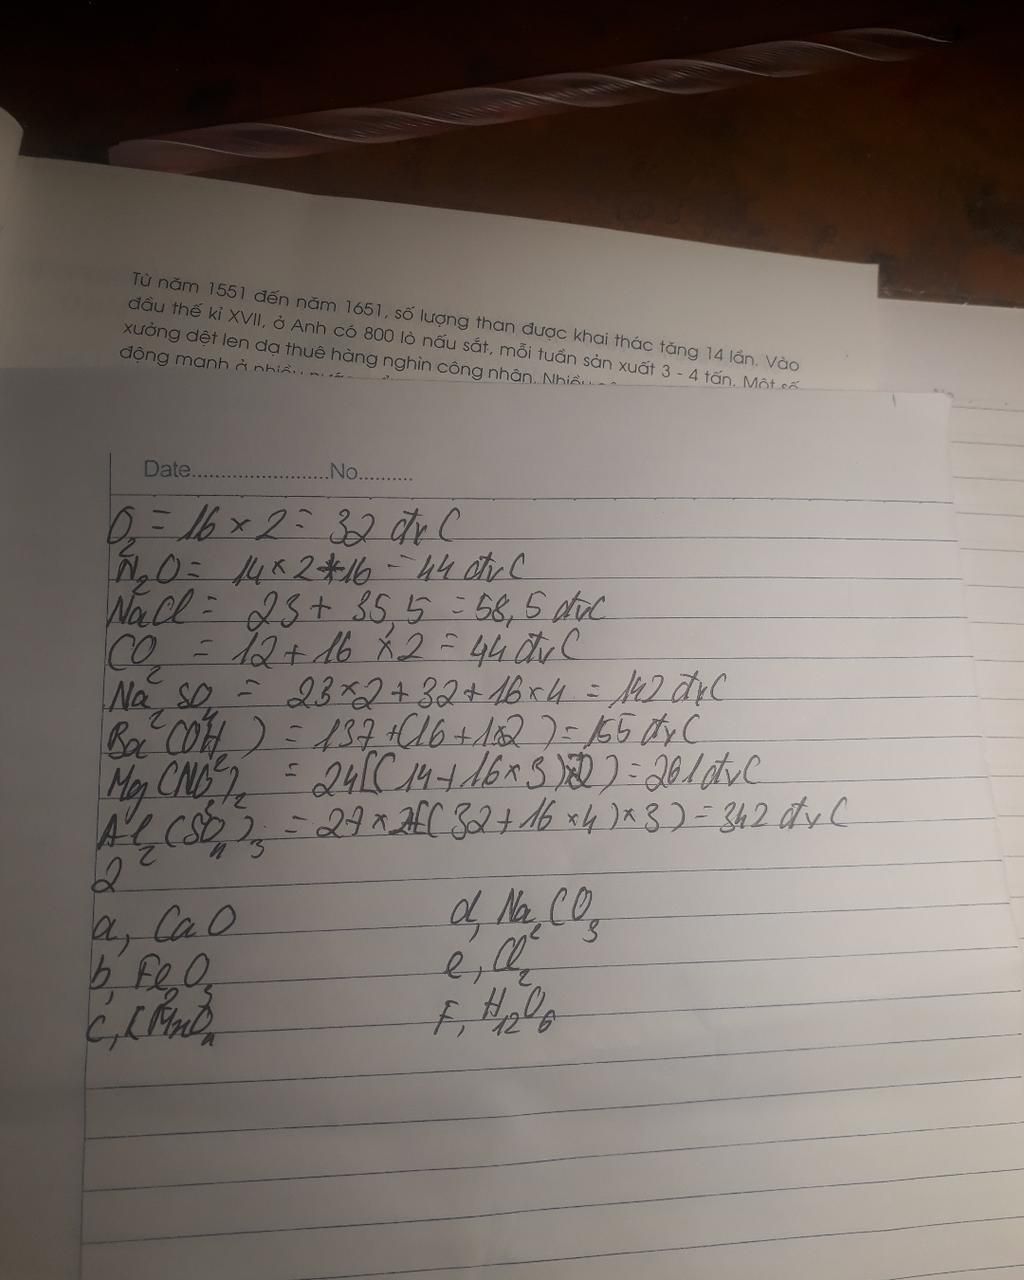 Từ năm 1551 đến năm 1651, số lượng than được khai thác tăng 14 lần. Vào
đầu thế kỉ XVII, ở Anh có 800 lò nấu sắt, mỗi tuần sản xuất 3 - 4 tấn. Một số
xưởng dệt len dạ thuê hàng nghìn công nhân. Nhiều
động mạnh ở nhiều
Date........................No..........
O2 = 16 x 2 = 32 đvC
N2O = 14 x 2 + 16 = 44 đvC
NaCl = 23 + 35,5 = 58,5 đvC
CO2 = 12 + 16 x 2 = 44 đvC
Na2SO4 = 23 x 2 + 32 + 16 x 4 = 142 đvC
Ba(OH2) = 137 + (16 + 1x2) = 155 đvC
Mg(NO3)2 = 24[(14 + 16 x 3) x 2) = 261 đvC
Al2(SO4)3 = 27 x 2+[(32 + 16 x 4) x 3) = 342 đvC
2
a, CaO d, Na2CO3
b, Fe2O3 e, Cl2
c, KMnO4 F, H12O6